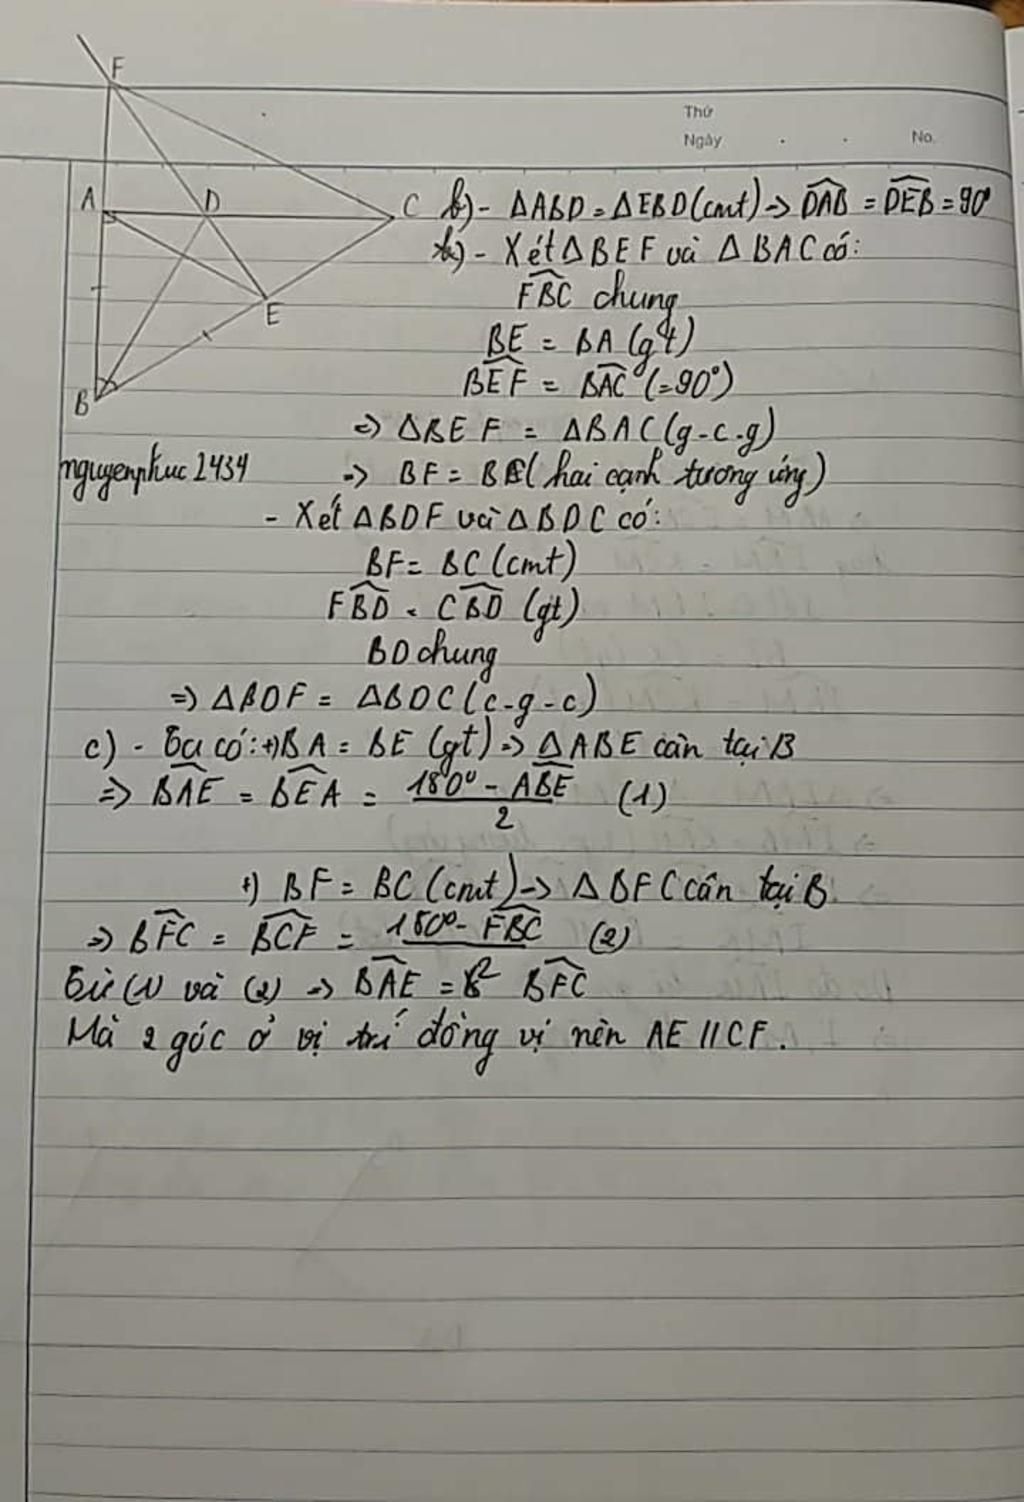 F
Thứ
Ngày . . No.
A D C b) - ΔABD = ΔEBD (cmt) => DAB = DEB = 90°
- Xét ΔBEF và ΔBAC có:
FBC chung
E
BE = BA (gt)
BEF = BAC (=90°)
B
=> ΔBEF = ΔBAC (g-c-g)
nguyenphuc2434 => BF = BC (hai cạnh tương ứng)
- Xét ΔBDF và ΔBDC có:
BF = BC (cmt)
FBD = CBD (gt)
BD chung
=> ΔBDF = ΔBDC (c-g-c)
c) - Ta có: +) BA = BE (gt) => ΔABE cân tại B
=> BAE = BEA = 180° - ABE / 2 (1)
+) BF = BC (cmt) -> ΔBFC cân tại B
=> BFC = BCF = 180° - FBC (2)
Từ (1) và (2) => BAE = BFC
Mà 2 góc ở vị trí đồng vị nên AE // CF.